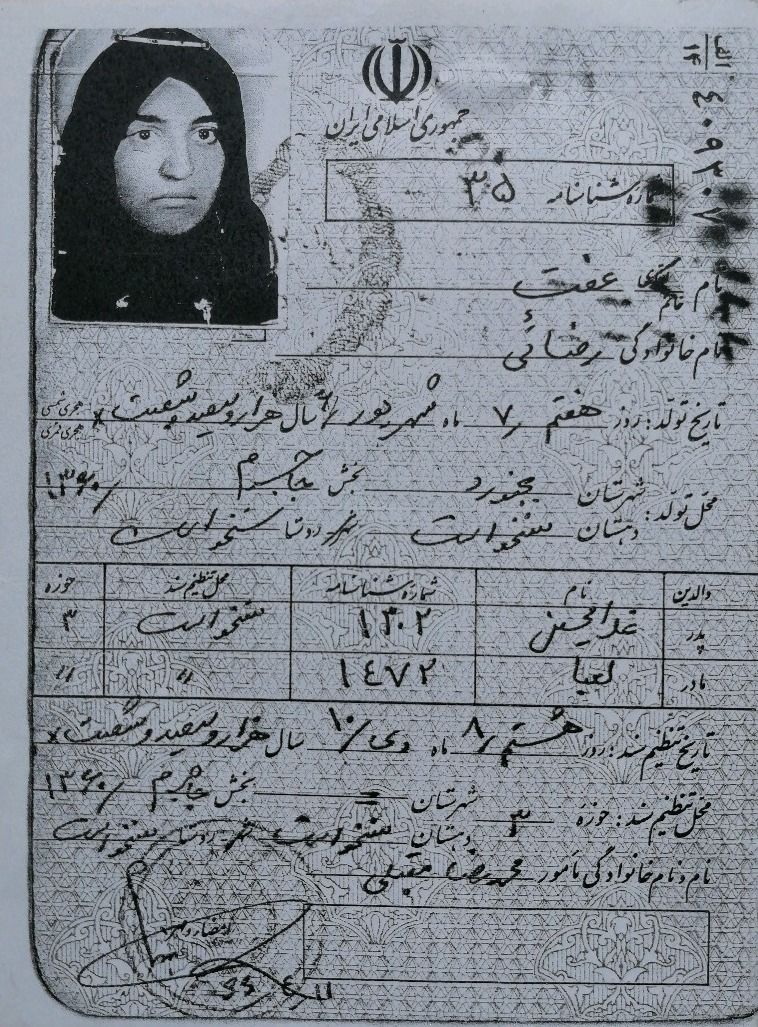 الف
۱۴
۴۰۹۳۰۷
جمهوری اسلامی ایران
شماره شناسنامه ۳۵
نام عفت
خانم
نام خانوادگی رضائی
تاریخ تولد: روز هفتم ۷ ماه شهریور /۶ سال هزار و سیصد و شصت × هجری شمسی
هجری قمری
محل تولد: شهرستان بجنورد بخش جاجرم ۱۳۶۰/
دهستان سنخواست شهر/روستا سنخواست
والدین نام شماره شناسنامه محل تنظیم سند حوزه
پدر غلامحسین ۱۳۰۲ سنخواست ۳
مادر لعیا ۱۴۷۲ " "
تاریخ تنظیم سند: روز هشتم /۸ ماه دی /۱۰ سال هزار و سیصد و شصت ×
محل تنظیم سند: حوزه ۳ شهرستان = بخش جاجرم ۱۳۶۰/
دهستان سنخواست شهر/روستا سنخواست
نام و نام خانوادگی مأمور محمدرضا مقبلی
امضاء و مهر